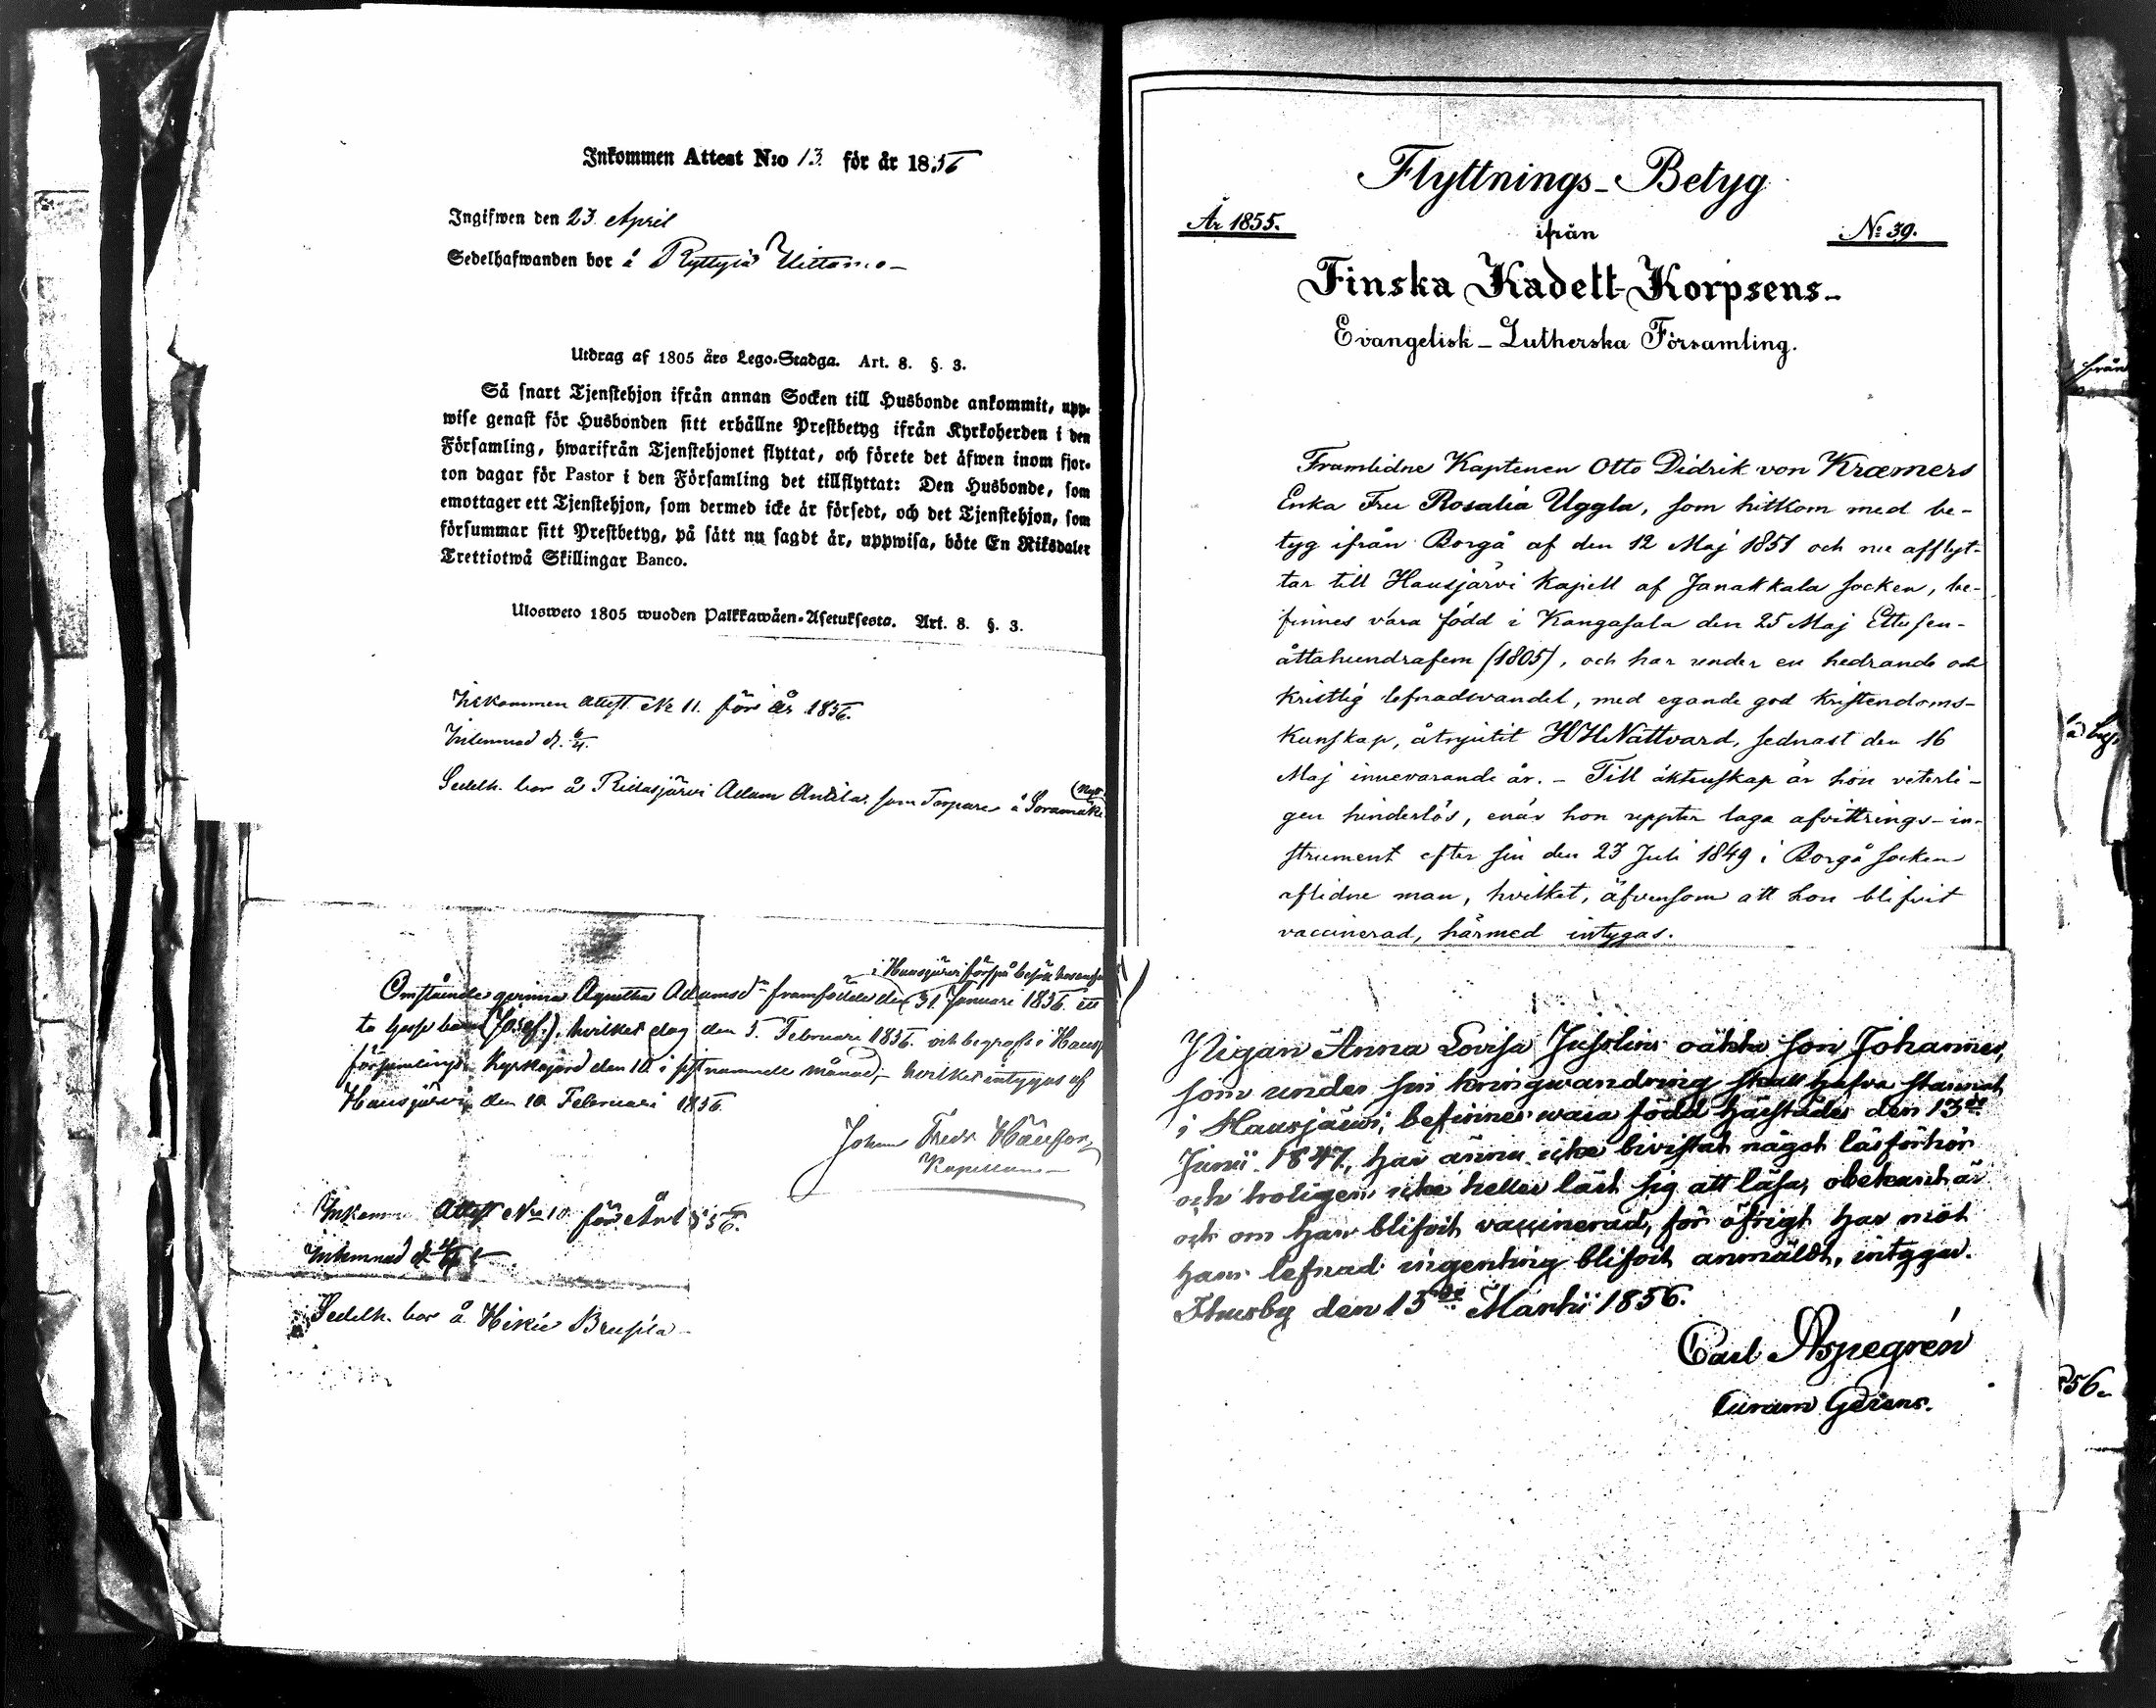 Inkommen Attest N:o 13 för år 1856
Ingifwen den 23 April
Sedelhafwanden bor å Ryttylä
Utdrag af 1805 års Lego-Stadga. Art. 8. §. 3.
Så snart Tjenstehjon ifrån annan Socken till Husbonde ankommit, upp-
wise genast för Husbonden sitt erhållne Prestbetyg ifrån Kyrkoherden i den
Församling, hwarifrån Tjenstehjonet flyttat, och förete det äfwen inom fjor-
ton dagar för Pastor i den Församling det tillflyttat: Den Husbonde, som
emottager ett Tjenstehjon, som dermed icke är försedt, och det Tjenstehjon, som
försummar sitt Prestbetyg, på sätt nu sagdt är, uppwisa, böte En Riksdaler
Trettiotwå Skillingar Banco.
Ulosweto 1805 wuoden Palkkawäen-Asetuksesta. Art. 8. §. 3.
Inkommen Attest No 11. för år 1856.
Inlemnad d. 6/4.
Sedelh. bor å Ridasjärvi Adam Anttila som Torpare å Soramäki
i Hausjärvi förs på besök
Omstående qvinna Agnetha Adamsdr framfödde den 31 Januari 1856 ett
(Josef.), hvilket dog den 5. Februari 1856. och begrofs i Hausj
församlings Kyrkogård den 10 i sistnämnde månad, hvilket intygas af
Hausjärvi den 10 Februari 1856.
Johan Fredr
Kapellan
Inkommen Attest No 10 för År 1856.
Inlemnad d.
Sedelh. bor å Hikiä
Flyttnings-Betyg
År 1855.
ifrån
No 39.
Finska Kadett-Korpsens-
Evangelisk-Lutherska Församling.
Framlidne Kaptenen Otto Didrik von Kræmers
Enka Fru Rosalia Uggla, som hitkom med be-
tyg ifrån Borgå af den 12 Maj 1851 och nu afflyt-
tar till Hausjärvi Kapell af Janakkala socken, be-
finnes vara född i Kangasala den 25 Maj Ettusen-
åttahundrafem (1805), och har under en hedrande och
kristlig lefnadsvandel, med egande god kristendoms-
kunskap, åtnjutit H H Nattvard, sednast den 16
Maj innevarande år. - Till äktenskap är hon veterli-
gen hinderlös, enär hon uppter laga afvittrings-in-
strument efter sin den 23 Juli 1849 i Borgå socken
aflidne man, hvilket, äfvensom att hon blifvit
vaccinerad, härmed intygas.
Pigan Anna Lovisa Jusslins oäkta son Johannes,
som under sin kringvandring skall hafva stannat
i Hausjärvi, befinnes vara född härstädes den 13de
Junii 1847, har ännu icke bivistat något läsförhör
och troligen icke heller lärt sig att läsa, obekant är
ock om han blifvit vaccinerad, för öfrigt har mot
hans lefnad ingenting blifvit anmäldt, intygar.
Thusby den 15de Martii 1856.
Carl Aspegrén
Curam Gerens.
från
56.